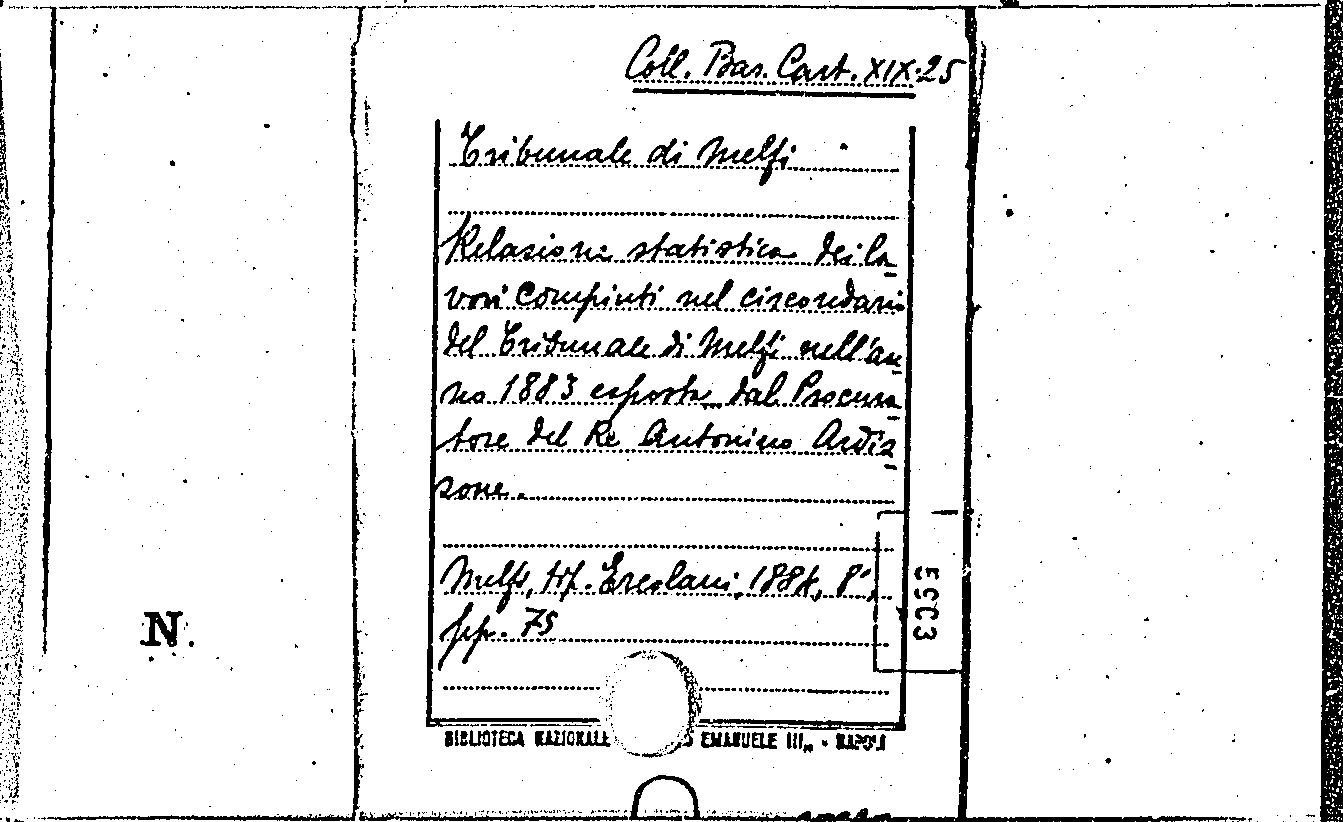 Coll. Bas. Cart. XIX.25
Tribunale di Melfi
Relazione statistica dei la_
vori compiuti nel circondario
del Tribunale di Melfi nell'an_
no 1883 esposta dal Procura_
tore del Re Antonino Ardiz_
zone.
Melfi, tip. Ercolani, 1884, 8°,
pp. 75
N.
BIBLIOTECA NAZIONALE EMANUELE III„ - NAPOLI